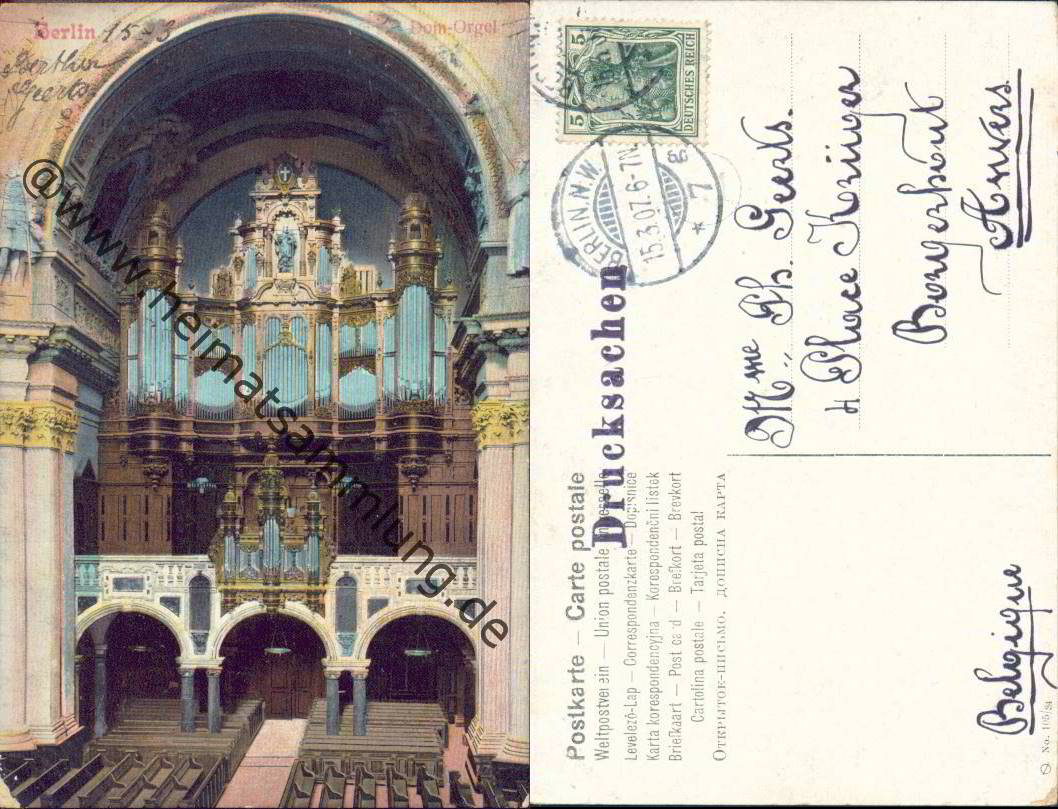 Berlin 15-3
Dom-Orgel
Geerts
@www.heimatsammlung.de
5 5
DEUTSCHES REICH
BERLIN.N.W.
15.3.07.6-7N.
* 7 g
Drucksachen
Mme Ph. Geerts.
4 Place Krüger
Borgerhout
Anvers
Belgique
Postkarte – Carte postale
Weltpostverein – Union postale universelle
Levelező-Lap – Correspondenzkarte – Dopisnice
Karta korespondencyjna – Korespondenční lístek
Briefkaart – Post card – Brefkort – Brevkort
Cartolina postale – Tarjeta postal
ОТКРЫТОЕ-ПИСЬМО. ДОПИСНА КАРТА